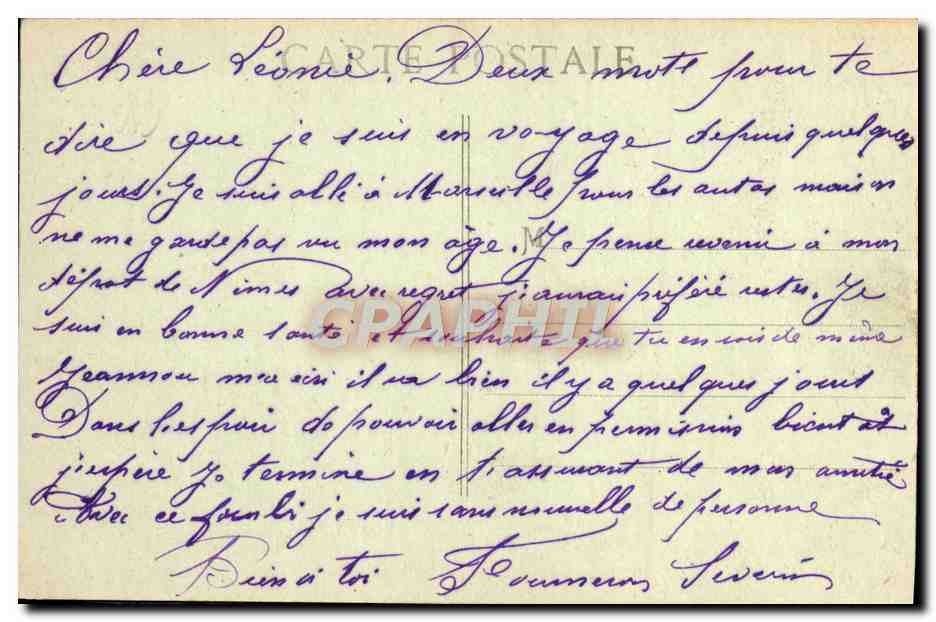 CARTE POSTALE
Chère Léonie. Deux mots pour te
dire que je suis en voyage depuis quelques
jours. Je suis allé à Marseille pour les autos mais on
ne me garde pas vu mon âge. Je pense revenir à mon
dépot de Nimes avec regret j'aurais préféré rester. Je
suis en bonne santé et souhaite que tu en sois de même
Jeannou m'écrit il va bien il y a quelques jours
Dans l'espoir de pouvoir aller en permission bientôt
j'espère Je termine en t'assurant de mon amitié
Avec ce fourbi je suis sans nouvelle de personne
Bien à toi Severin
CPAPHIL